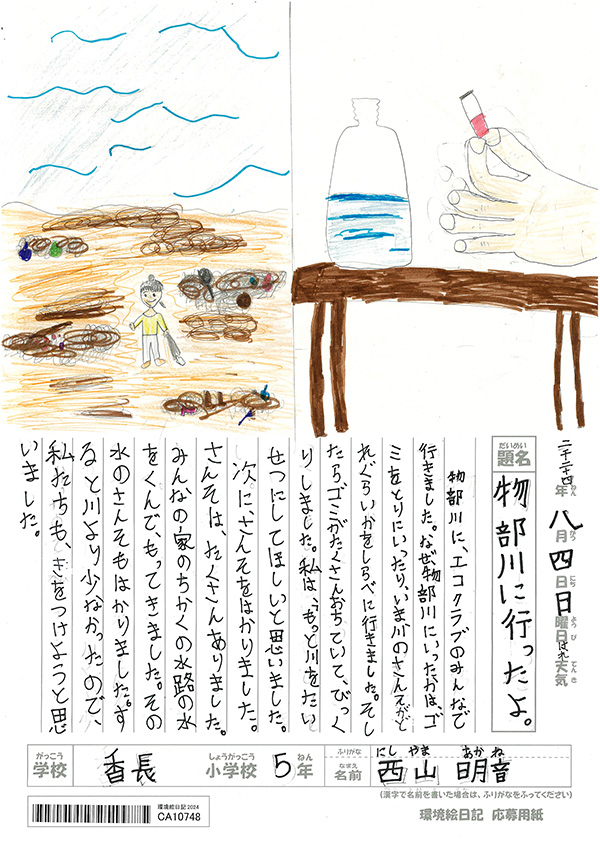 二千二十四年八月四日日曜日はれ天気
ねん がつ にち ようび てんき
だいめい
題名 物部川に行ったよ。
物部川に、エコクラブのみんなで
行きました。なぜ物部川にいったかは、ゴ
ミをとりにいったり、いま川のさんそがど
れぐらいかをしらべに行きました。そし
たら、ゴミがたくさんおちていて、びっく
りしました。私は、もっと川をたい
せつにしてほしいと思いました。
次に、さんそをはかりました。
さんそは、たくさんありました。
みんなの家のちかくの水路の水
をくんで、もってきました。その
水のさんそもはかりました。す
ると川より少なかったので、
私たちも、きをつけようと思
いました。
がっこう しょうがっこう ねん
学校 香長 小学校 5年
ふりがな にし やま あか ね
なまえ
名前 西山 明音
(漢字で名前を書いた場合は、ふりがなをふってください)
環境絵日記2024
CA10748
環境絵日記 応募用紙